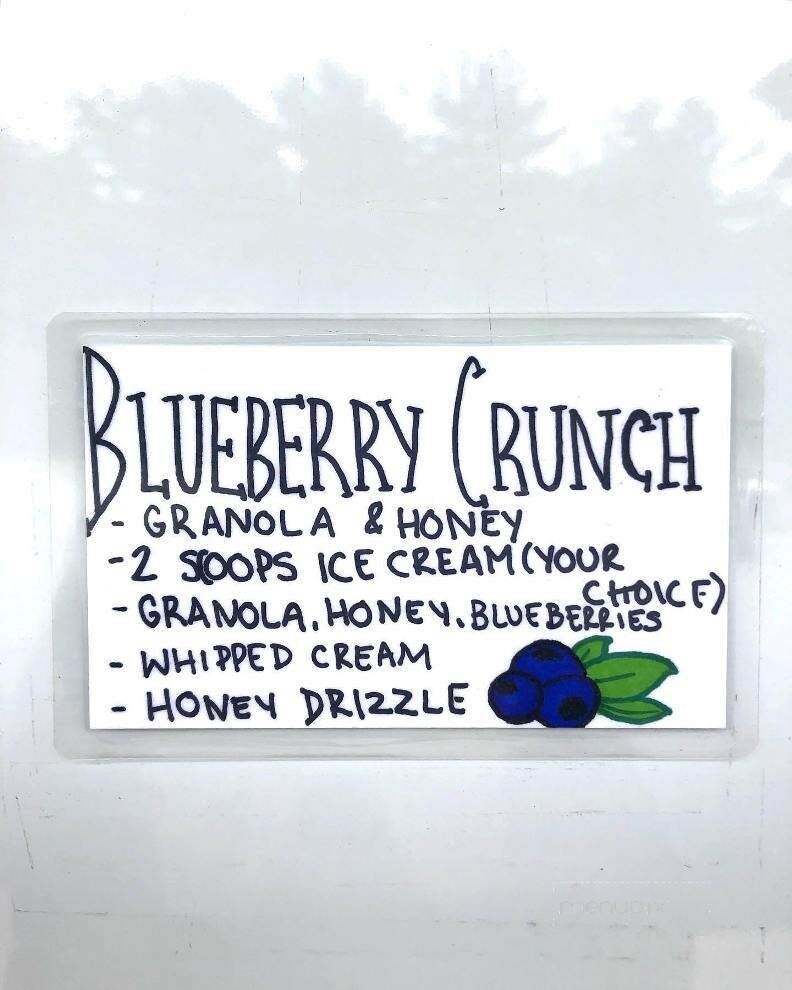 BLUEBERRY CRUNCH
- GRANOLA & HONEY
- 2 SCOOPS ICE CREAM (YOUR
CHOICE)
- GRANOLA, HONEY, BLUEBERRIES
- WHIPPED CREAM
- HONEY DRIZZLE